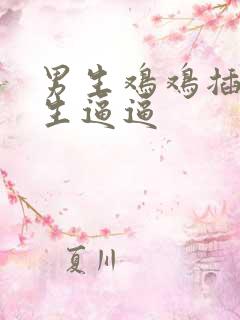 男生鸡鸡插
生逼逼
夏川